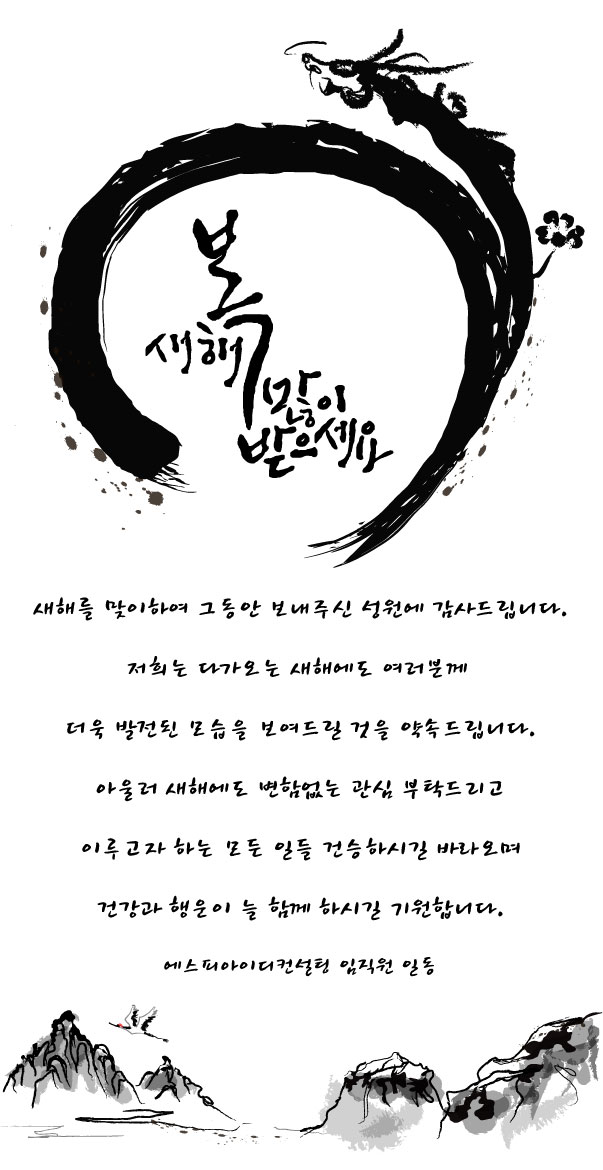 새해
복
많이
받으세요
새해를 맞이하여 그동안 보내주신 성원에 감사드립니다.
저희는 다가오는 새해에도 여러분께
더욱 발전된 모습을 보여드릴 것을 약속드립니다.
아울러 새해에도 변함없는 관심 부탁드리고
이루고자 하는 모든 일들 건승하시길 바라오며
건강과 행운이 늘 함께 하시길 기원합니다.
에스피아이디컨설팅 임직원 일동